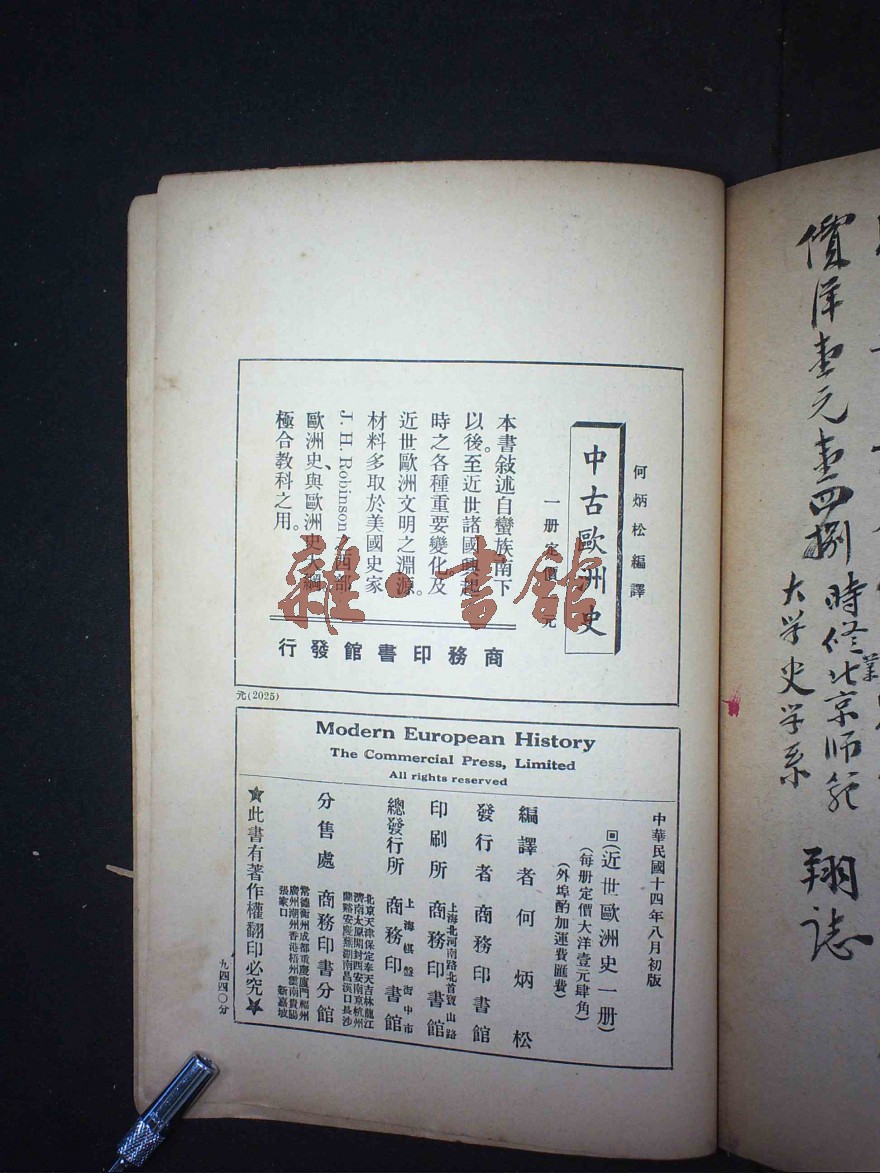 何炳松編譯
中古歐洲史
一册定價 元
本書敍述自蠻族南下
以後。至近世諸國興起
時之各種重要變化。及
近世歐洲文明之淵源。
材料多取於美國史家
J. H. Robinson 西部
歐洲史、與歐洲史大綱
極合教科之用。
商務印書館發行
雜·書館
元(2025)
Modern European History
The Commercial Press, Limited
All rights reserved
中華民國十四年八月初版
回(近世歐洲史一册)
(每册定價大洋壹元肆角)
(外埠酌加運費匯費)
編譯者 何炳松
發行者 商務印書館
印刷所 上海北河南路北首寶山路 商務印書館
總發行所 上海棋盤街中市 商務印書館
分售處 商務印書分館
北京天津保定奉天吉林龍江
濟南太原開封西安南京杭州
蘭谿安慶蕪湖南昌漢口長沙
常德衡州成都重慶廈門福州
廣州潮州香港梧州雲南貴陽
張家口 新嘉坡
★此書有著作權翻印必究★
九四四〇分
價洋壹元壹四捌
時修業北京师範
大学史学系
翔誌